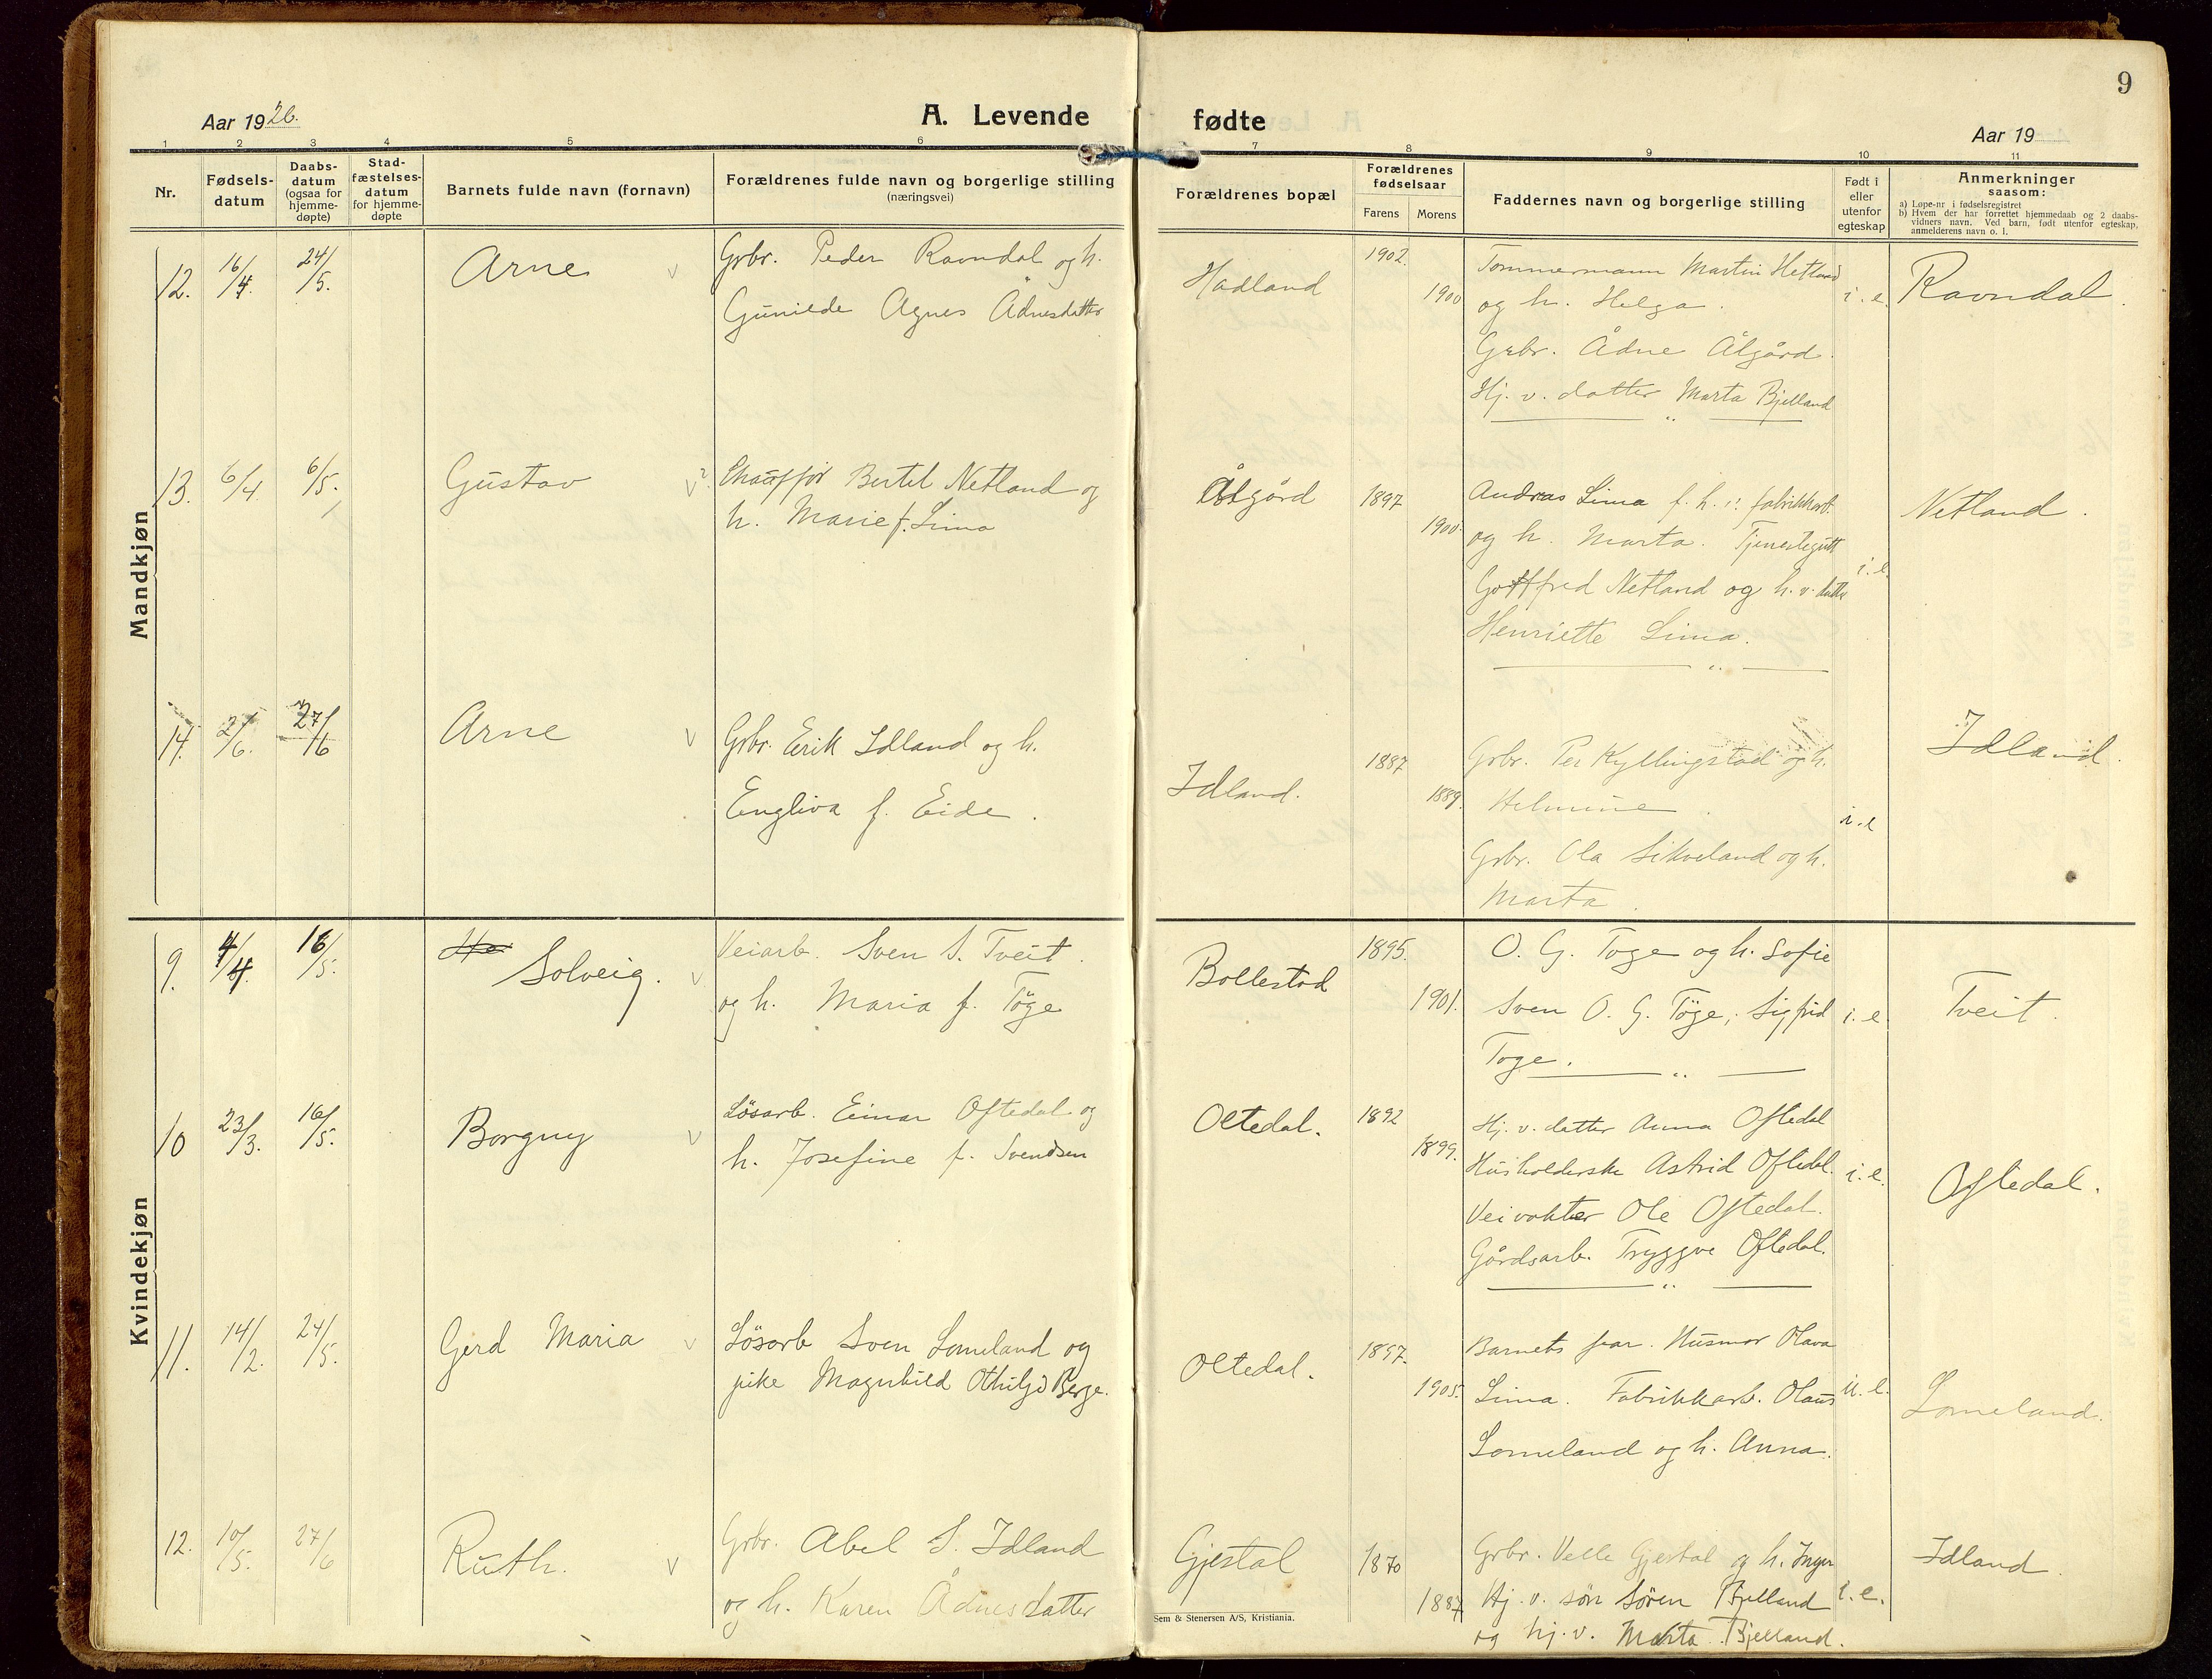 9
Aar 1926.
A. Levende
fødte
Aar 19
1 2 3 4 5 6 7 8 9 10 11
Nr.
Fødsels-
datum
Daabs-
datum
(ogsaa for
hjemme-
døpte)
Stad-
fæstelses-
datum
for hjemme-
døpte
Barnets fulde navn (fornavn)
Forældrenes fulde navn og borgerlige stilling
(næringsvei)
Forældrenes bopæl
Forældrenes
fødselsaar
Farens Morens
Faddernes navn og borgerlige stilling
Født i
eller
utenfor
egteskap
Anmerkninger
saasom:
a) Løpe-nr i fødselsregistret
b) Hvem der har forrettet hjemmedaab og 2 daabs-
vidners navn. Ved barn, født utenfor egteskap,
anmelderens navn o. l.
Mandkjøn
12. 16/4. 24/5. Arne v
Grbr. Peder Ravndal og h.
Gunilde Agnes Ådnesdatter
Hadland
1902.
1900
Tømmermann Martin Hetland
og h. Helga.
Grbr. Ådne Ålgård.
Hj. v. datter Marta Bjelland
i. e.
Ravndal.
13. 6/4. 6/5. Gustav v?
Chauffør Bertel Netland og
h. Marie f. Lima
Ålgård
1897
1900.
Andreas Lima f. h. fabrikkarb.
og h. Marta. Tjenestegutt
Gottfred Netland og h. v. datter
Henriette Lima.
i. e.
Netland.
14. 2/6. 27/6 Arne v
Grbr. Erik Idland og h.
Engliva f. Eide.
Idland.
1887
1889.
Grbr. Per Kyllingstad og h.
Helmine.
Grbr. Ola Sikveland og h.
Marta.
i. e
Idland.
Kvindekjøn
9. 4/4. 16/5. He Solveig. v
Veiarb. Sven S. Tveit.
og h. Maria f. Töge
Bollestad
1895.
1901.
O. G. Toge og h. Sofie
Sven O. G. Töge, Sigfrid
Toge.
i. e.
Tveit.
10 23/3. 16/5. Borgny v
Lösarb. Einar Oftedal og
h. Josefine f. Svendsen
Oltedal.
1892
1899.
Hj. v. datter Anna Oftedal
Husholderske Astrid Oftedal.
Veivokter Ole Oftedal.
Gårdsarb. Tryggve Oftedal.
i. e.
Oftedal.
11. 14/2. 24/5. Gerd Maria v
Lösarb Sven Lomeland og
pike Magnhild Othilje Berge.
Oltedal.
1897.
1905.
Barnets far. Husmor Olava
Lima. Fabrikkarb. Olaus
Lomeland og h. Anna.
u. e.
Lomeland.
12. 10/5. 27/6 Ruth. v
Grbr. Abel S. Idland
og h. Karen Ådnesdatter
Gjestal
1870
1887
Grbr. Velle Gjestal og h. Inger
Hj. v. søn Søren Bjelland
og hj. v. Marta Bjelland.
i. e.
Idland.
Sem & Stenersen A/S, Kristiania.